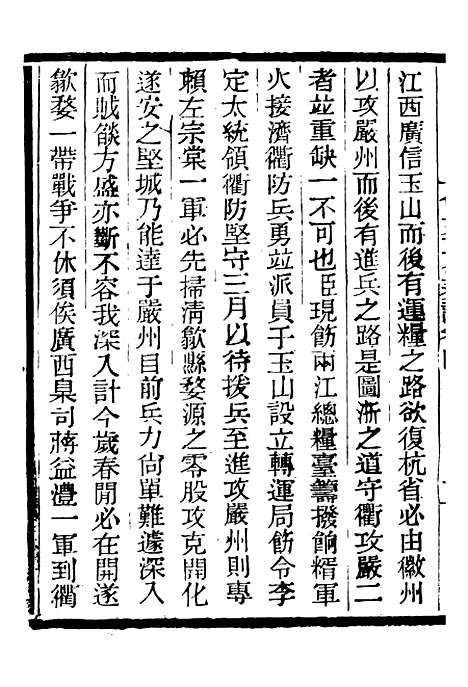 江西廣信玉山而後有運糧之路欲復杭省必由徽州
以攻嚴州而後有進兵之路是圖浙之道守衢攻嚴二
者竝重缺一不可也臣現飭兩江總糧臺籌撥餉糈軍
火接濟衢防兵勇竝派員于玉山設立轉運局飭令李
定太統領衢防堅守三月以待援兵至進攻嚴州則專
賴左宗棠一軍必先掃清歙縣婺源之零股攻克開化
遂安之堅城乃能達于嚴州目前兵力尙單難遽深入
而賊燄方盛亦斷不容我深入計今歲春閒必在開遂
歙婺一帶戰爭不休須俟廣西臬司蔣益澧一軍到衢